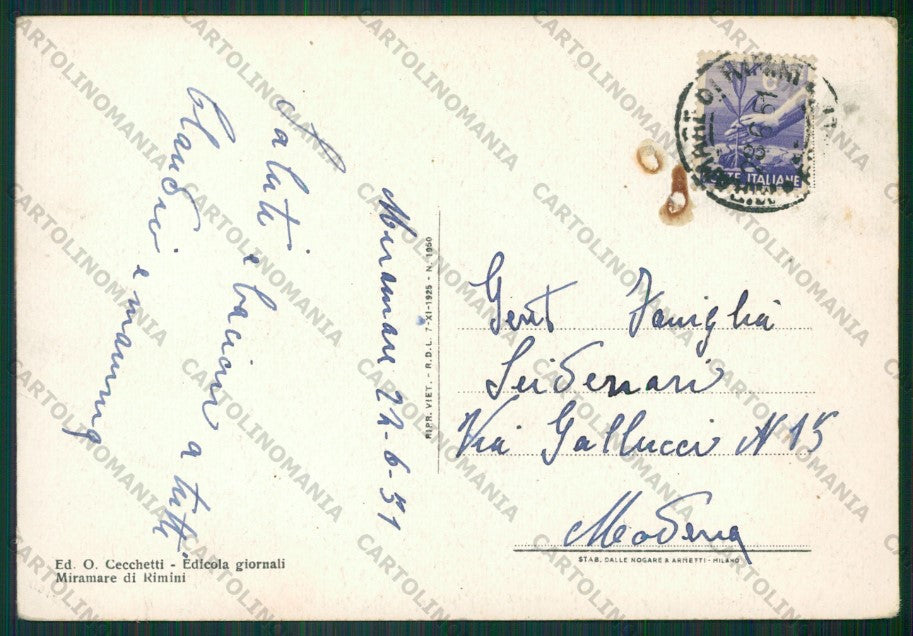 Miramare 22-6-51
Saluti e bacioni a tutti
Claudio e mammy
RIPR. VIET. - R.D.L. 7-XI-1925 - N. 1950
Gent Famiglia
Seidenari
Via Gallucci N 15
Modena
STAB. DALLE NOGARE & ARMETTI - MILANO
Ed. O. Cecchetti - Edicola giornali
Miramare di Rimini
POSTE ITALIANE
CARTOLINOMANIA